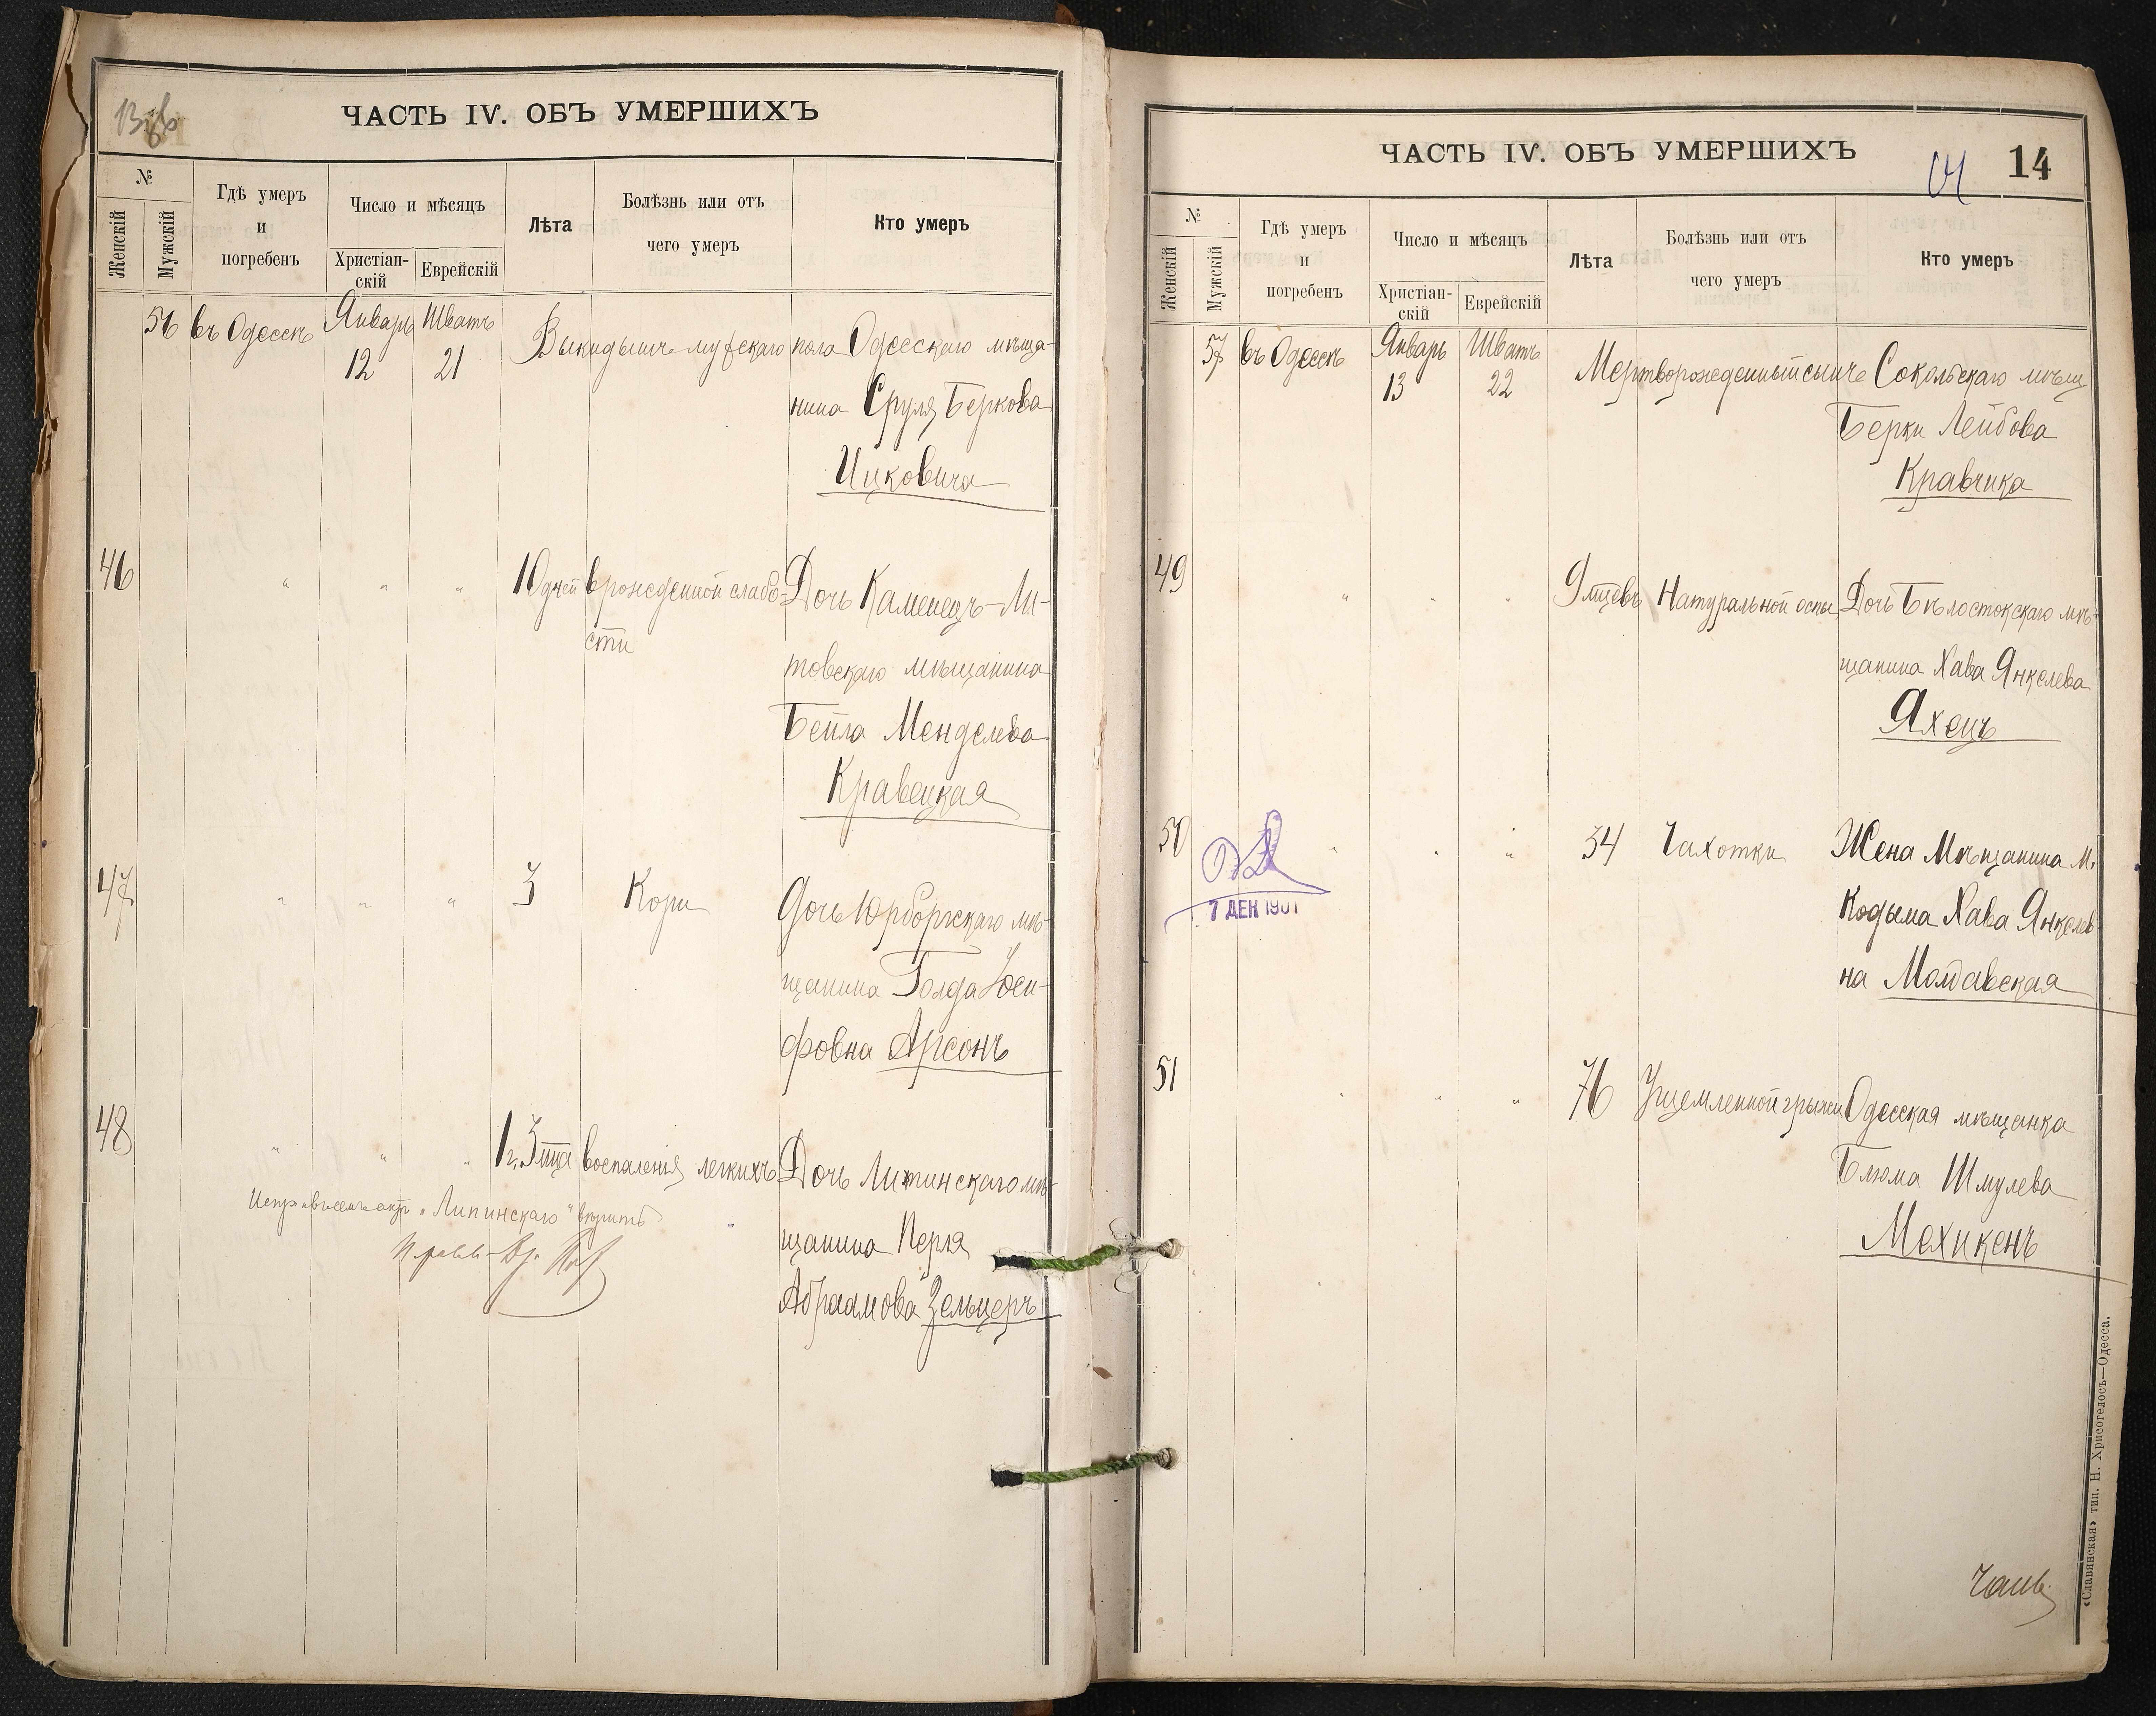 ЧАСТЬ IV. ОБЪ УМЕРШИХЪ
№
Женскій
Мужскій
Гдѣ умеръ
и
погребенъ
Число и мѣсяцъ
Христіан-
скій
Еврейскій
Лѣта
Болѣзнь или отъ
чего умеръ
Кто умеръ
56 въ Одессѣ Январь 12 Шватъ 21 Выкидышъ мужскаго пола Одесскаго мѣща-
нина Сруля Беркова
Ицковича
46 " " " 10 дней врожденной слабо- Дочь Каменецъ-Ли-
сти
товскаго мѣщанина
Бейла Менделева
Кравецкая
47 " " " 3 Кори Дочь Юрборгскаго мѣ-
щанина Голда Іоси-
фовна Арсонъ
48 " " " 1 г. 3 мца воспаленія легкихъ Дочь Литинскаго мѣ-
"Липинскаго"
щанина Перля
Абрамова Зельцеръ
ЧАСТЬ IV. ОБЪ УМЕРШИХЪ
14
№
Женскій
Мужскій
Гдѣ умеръ
и
погребенъ
Число и мѣсяцъ
Христіан-
скій
Еврейскій
Лѣта
Болѣзнь или отъ
чего умеръ
Кто умеръ
57 въ Одессѣ Январь 13 Шватъ 22 Мертворожденный сынъ Сокольскаго мѣщ
Берки Лейбова
Кравчика
49 " " " 9 мцевъ Натуральной оспы Дочь Бѣлостокскаго мѣ-
щанина Хава Янкелева
Яхецъ
50 " " " 54 Чахотки Жена Мѣщанина м.
Кодыма Хава Янкелев-
на Молдавская
7 ДЕК 1901
51 " " " 76 Ущемленной грыжи Одесская мѣщанка
Блюма Шмулева
Мехикенъ
«Славянская» тип. Н. Хрисогелосъ—Одесса.